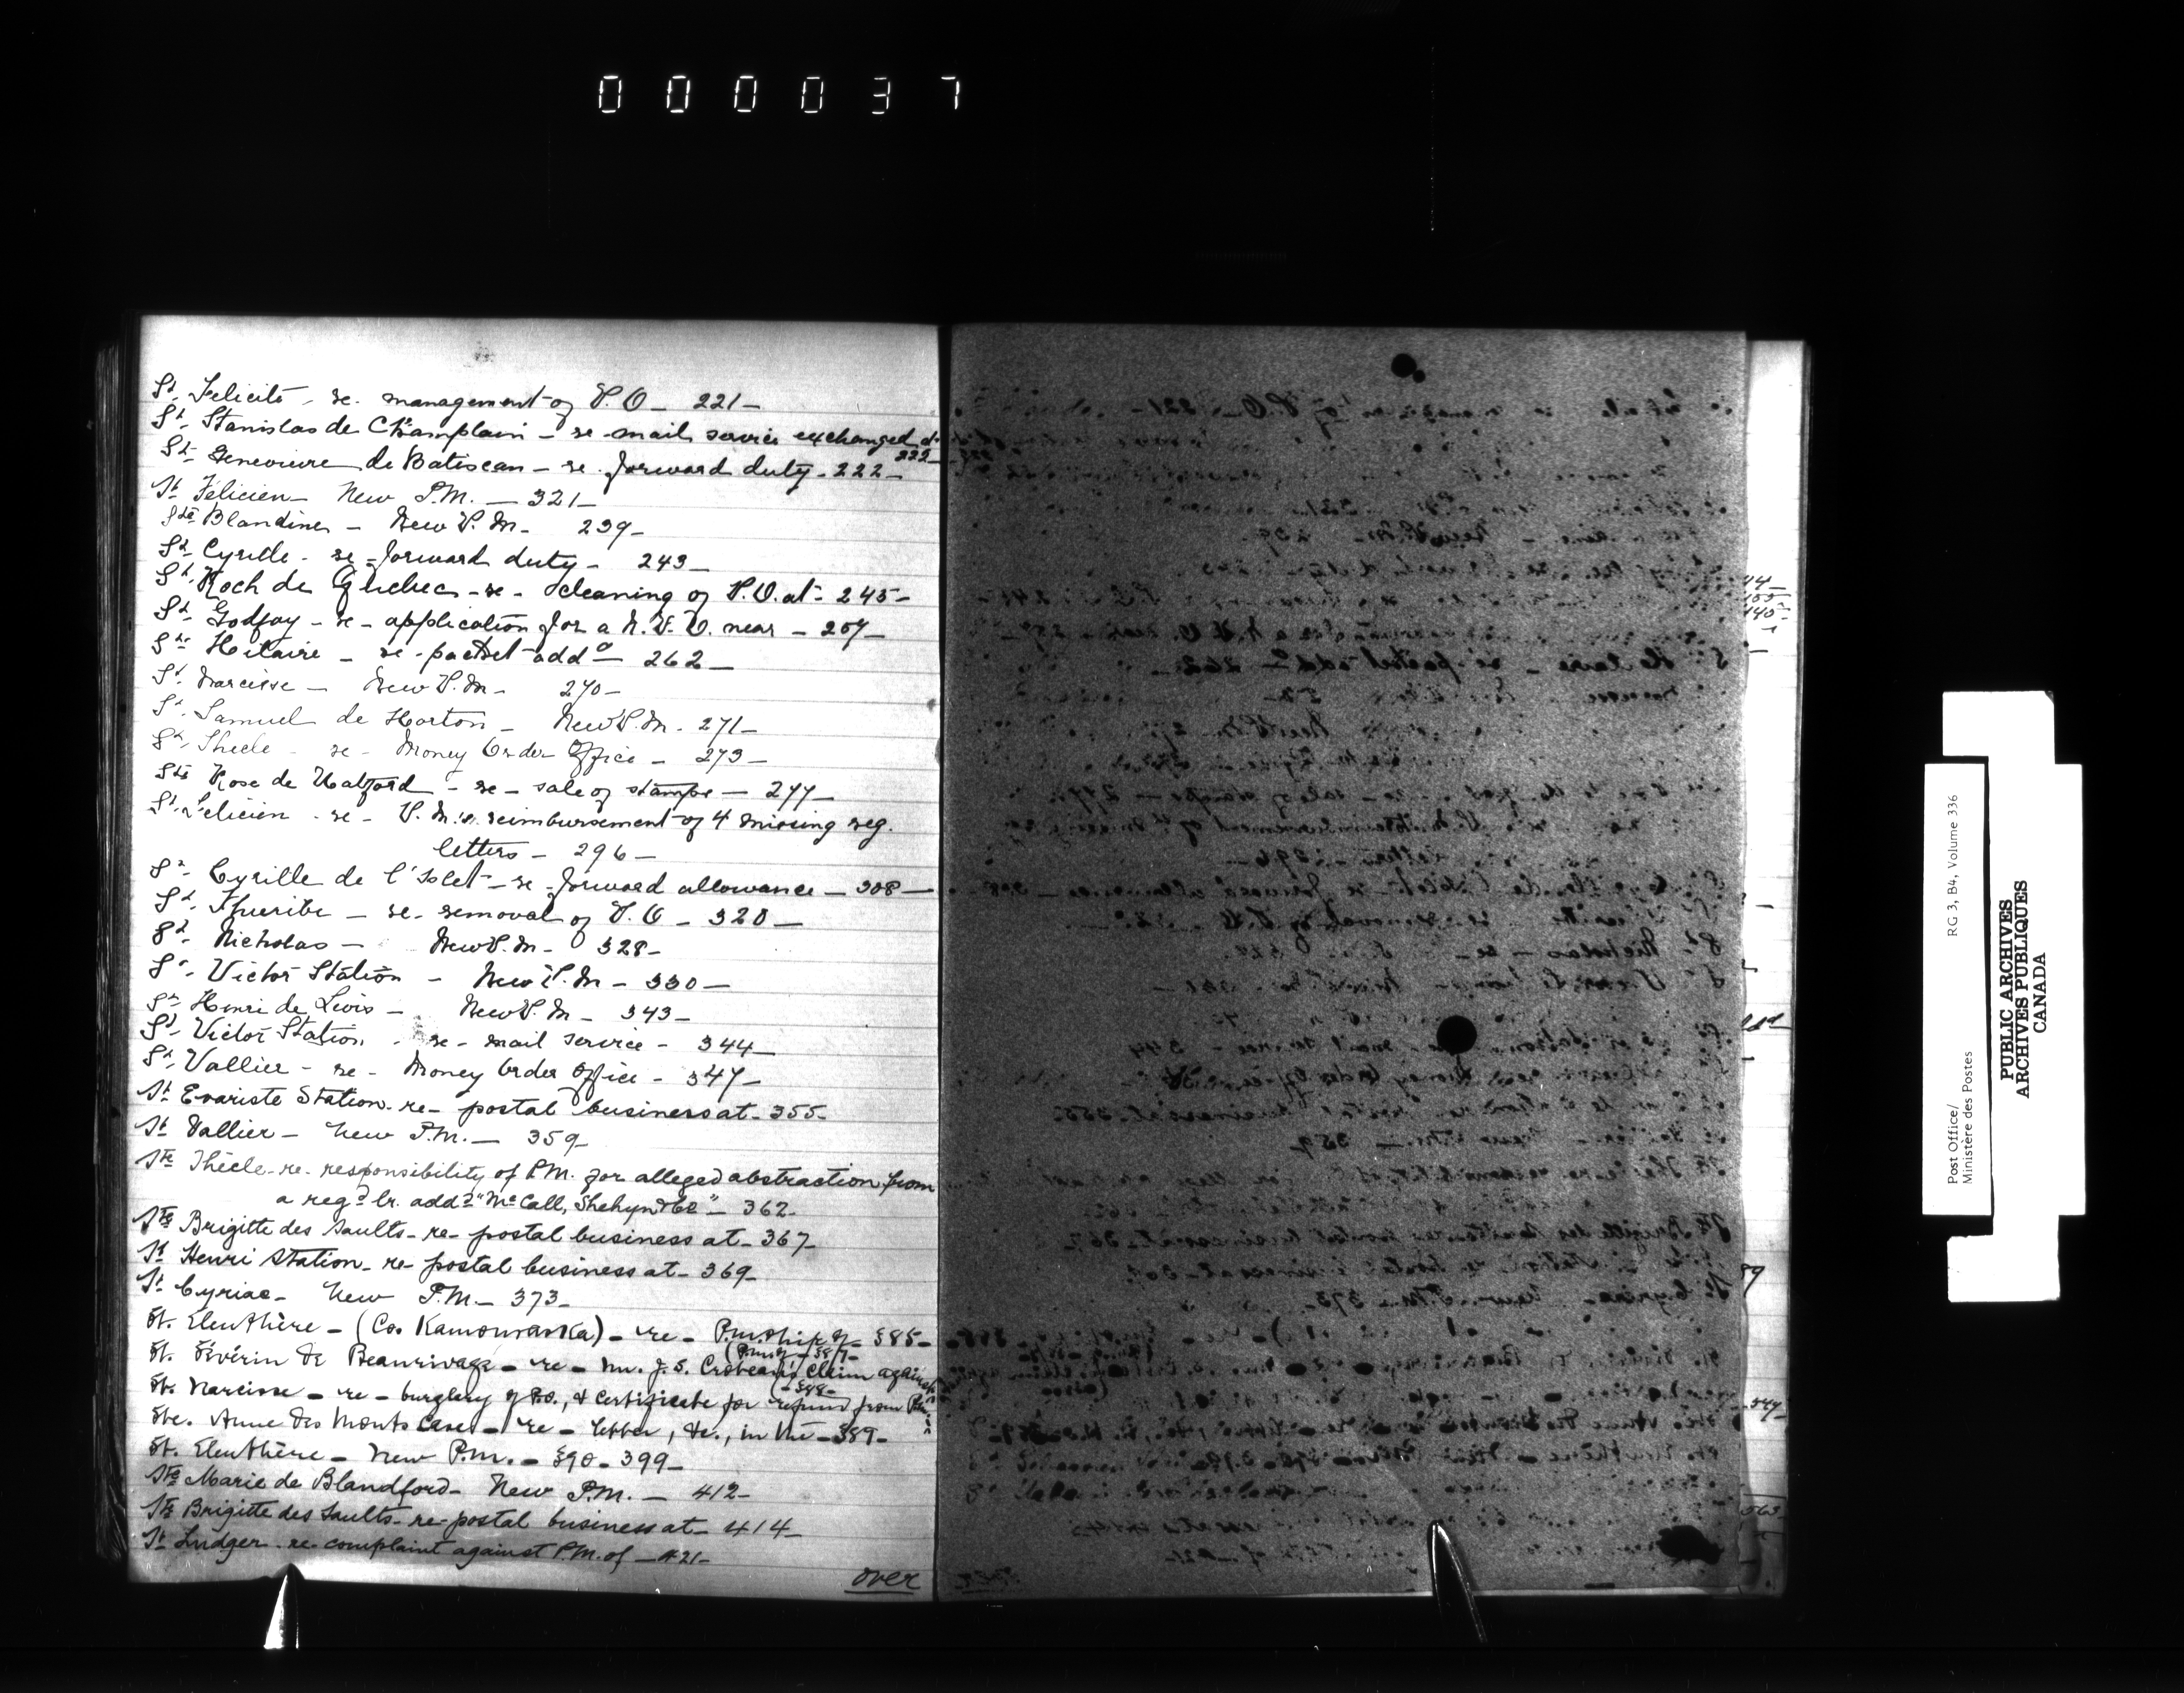 000037
St. Felicité - re. management of P.O - 221 -
St. Stanislas de Champlain - re - mail service exchanged at
222 -
Ste Genevieve de Batiscan - re. forward duty - 222 -
St Félicien - New P.M. - 321 -
Ste Blandine - New P.M - 239 -
St. Cyrille - re - forward duty - 243 -
St. Roch de Quebec - re - cleaning of P.O. at - 245 -
St. Godfoy - re - application for a N.P.O. near - 257 -
St. Hilaire - re - packet add - 262 -
St. Narcisse - New P.M - 270 -
St. Samuel de Horton - New P.M. 271 -
St. Thecle - re - Money Order Office - 273 -
Ste Rose de Watford - re - sale of stamps - 277 -
St. Felicien - re - P.M.'s reimbursement of 4 missing reg.
letters - 296 -
St. Cyrille de l'Islet - re - forward allowance - 308 -
St. Thuribe - re - removal of P.O - 320 -
St. Nicholas - New P.M - 328 -
St. Victor Station - New P.M - 330 -
St. Henri de Levis - New P.M - 343 -
St. Victor Station - re - mail service - 344 -
St. Vallier - re - Money Order Office - 347 -
St Evariste Station - re - postal business at - 355 -
St Vallier - New P.M. - 359 -
Ste Thècle - re - responsibility of P.M. for alleged abstraction from
a regd lr. addd "McCall, Shehyn & Co" - 362 -
Ste Brigitte des Saults - re - postal business at - 367 -
St Henri Station - re - postal business at - 369 -
St Cyriac - New P.M. - 373 -
St. Eleuthère - (Co. Kamouraska) - re - P.m.ship of - 385 -
(P.m. of - 387 -
St. Sévérin de Beaurivage - re - Mr. J. S. Croteau's claim against
(- 388 -
St. Narcisse - re - burglary of P.O., & Certificate for refund from
Ste. Anne des Monts Case - re - letter, &c., in the - 389 -
St. Eleuthère - New P.m. - 390 - 399 -
Ste Marie de Blandford - New P.M. - 412 -
Ste Brigitte des Saults - re - postal business at - 414 -
St Ludger - re complaint against P.M. of - 421 -
over
Post Office/
Ministère des Postes
RG 3, B4, Volume 336
PUBLIC ARCHIVES
ARCHIVES PUBLIQUES
CANADA